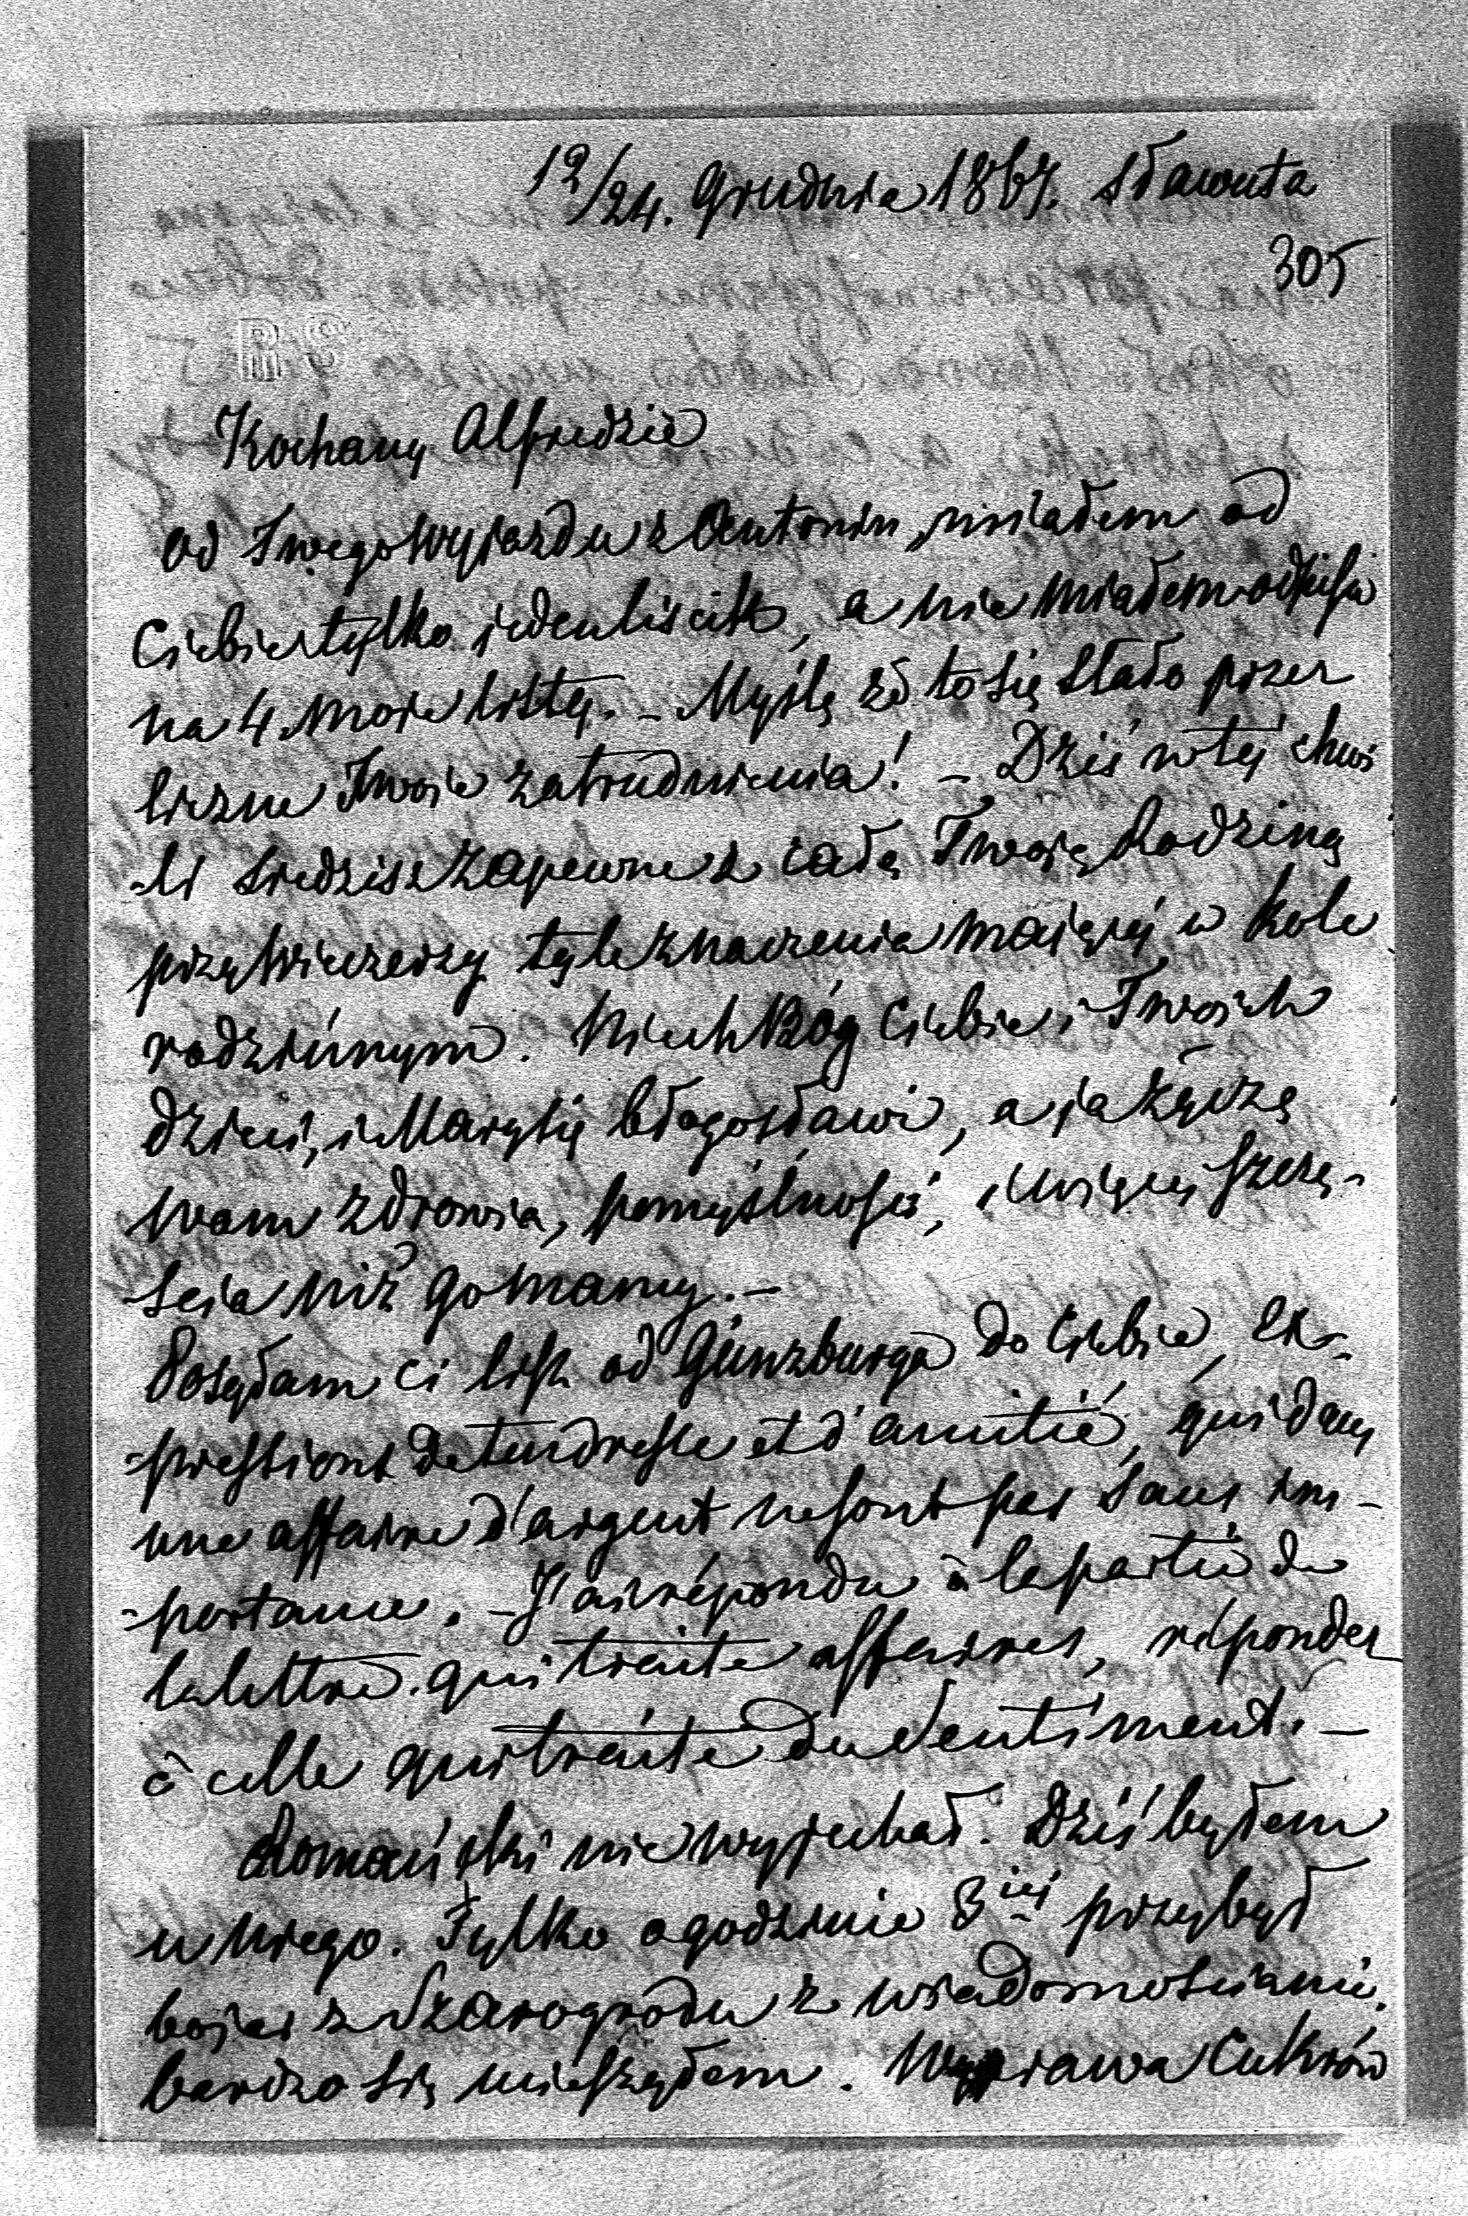 12/24. Grudnia 1867. Sławuta
305
RS
Kochany Alfredzie
Od Twego wyjazdu z Antonin, miałem od
Ciebie tylko jeden liścik, a nie miałem odpisu
na 4 moje listy. – Myślę że to się stało przez
liczne Twoje zatrudnienia! – Dziś w tej chwi
-li siedzisz zapewne z całą Twoją Rodziną
przy wieczerzy tyle znaczenia mającej w kole
rodzinnym. Niech Bóg Ciebie i Twoich
dzieci, i Marysię błogosławi, a ja życzę
Wam zdrowia, pomyślności, i więcej szczę-
-ścia niż go mamy. –
Posyłam ci list od Günzburga do Ciebie, ex-
-pressions de tendresse et d'amitié, qui dans
une affaire d'argent ne sont pas sans im-
-portance. – J'ai répondu à la partie de
la lettre qui traite affaires, répondez
à celle qui traite du sentiment. –
Romański nie wyjechał. Dziś byłem
u niego. Tylko o godzinie 3iej przybył
bojar z Szarogrodu z wiadomościami,
bardzo się ucieszyłem. Wyprawa Cukrów